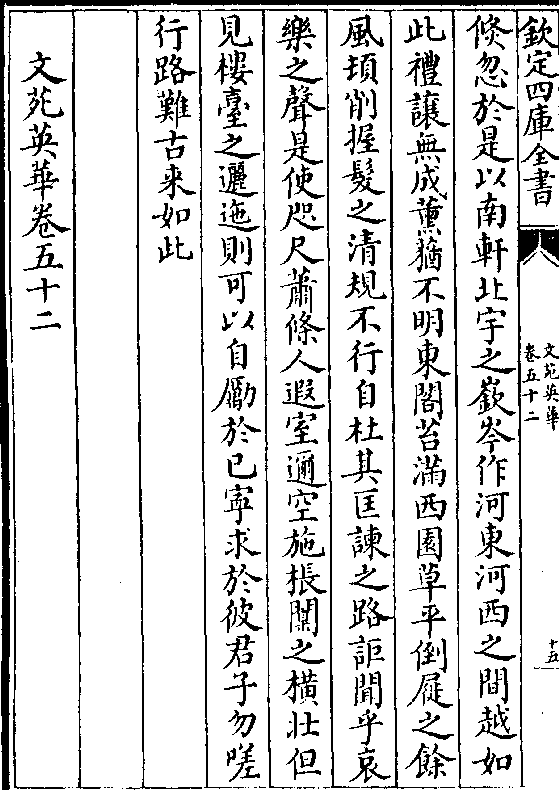 欽定四庫全書
文苑英華
卷五十二
十五
倐忽於是以南軒北宇之嶔岑作河東河西之間越如
此禮讓無成薰蕕不明東閣苔滿西園草平倒屣之餘
風頓削握髮之清規不行自杜其匡諫之路詎聞乎哀
樂之聲是使咫尺蕭條人遐室邇空施棖闑之橫壯但
見樓臺之邐迤則可以自勵於已寧求於彼君子勿嗟
行路難古来如此
文苑英華卷五十二